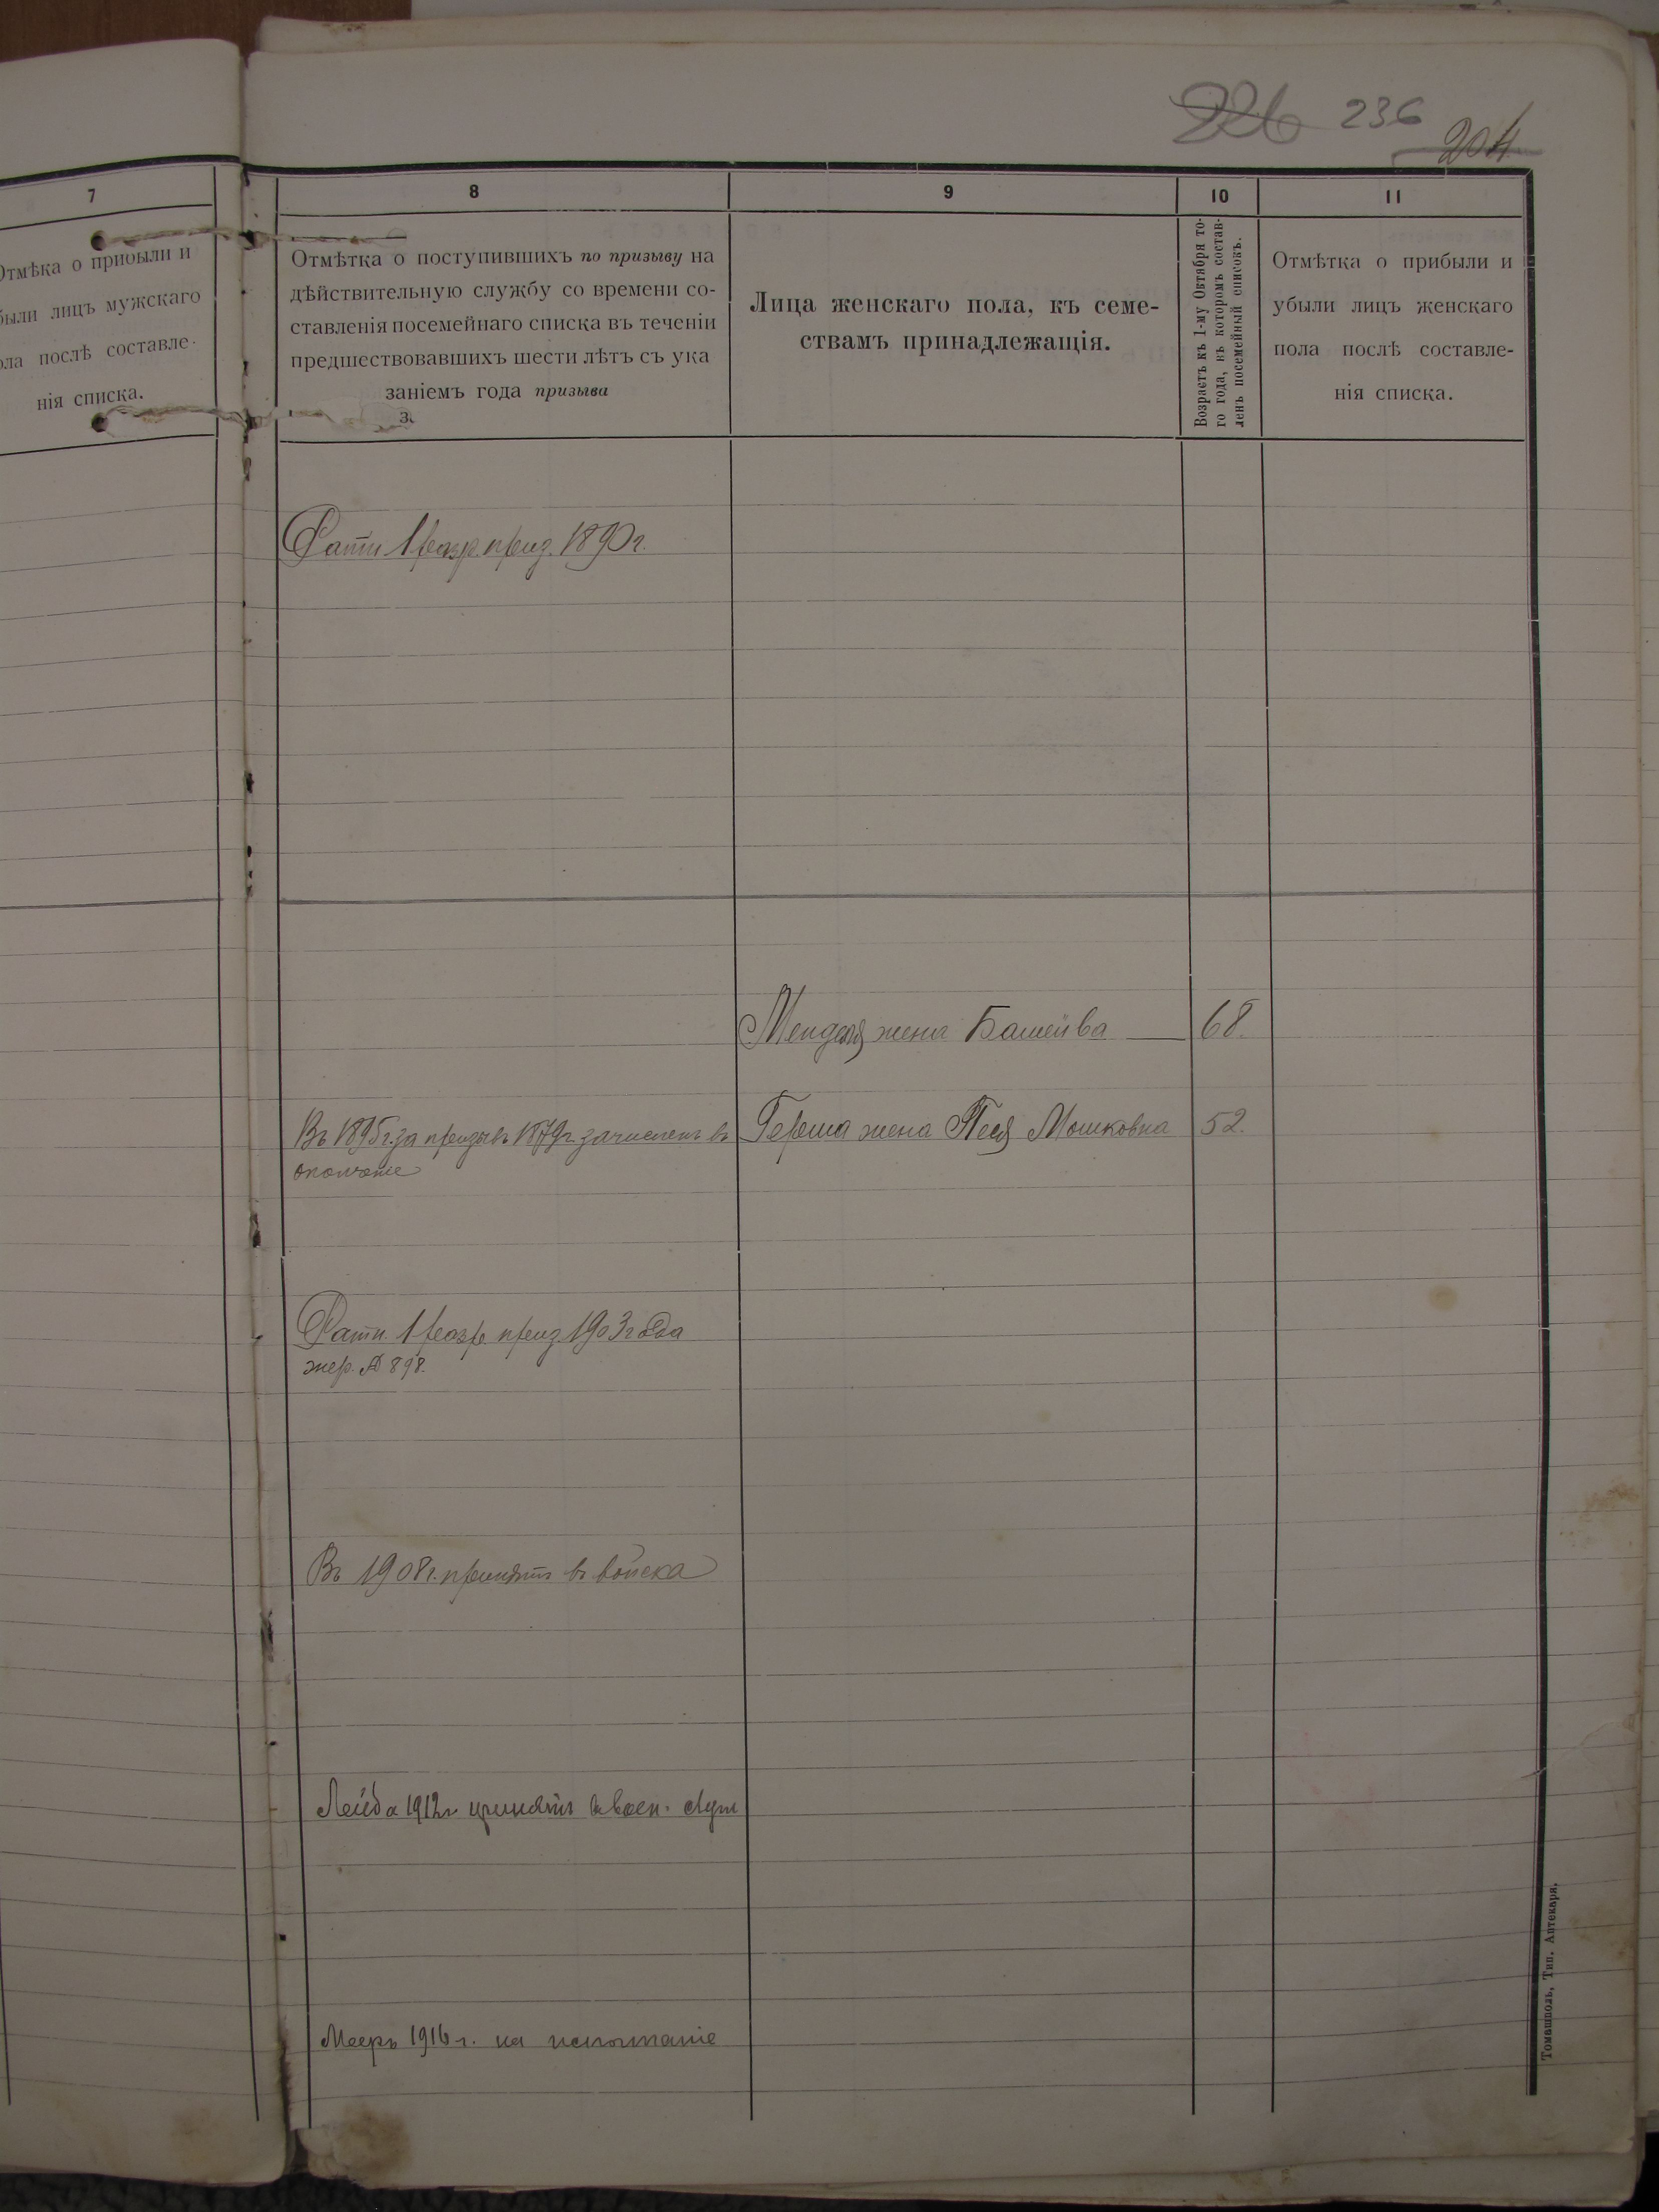 226 236 204
7
Отмѣтка о прибыли и
были лицъ мужскаго
ола послѣ составле-
нія списка.
8
Отмѣтка о поступившихъ по призыву на
дѣйствительную службу со времени со-
ставленія посемейнаго списка въ теченіи
предшествовавшихъ шести лѣтъ съ ука
заніемъ года призыва
з.
9
Лица женскаго пола, къ семе-
ствамъ принадлежащія.
10
Возрастъ къ 1-му Октября то-
го года, въ которомъ состав-
ленъ посемейный списокъ.
11
Отмѣтка о прибыли и
убыли лицъ женскаго
пола послѣ составле-
нія списка.
Ратн 1 разр. приз. 1890 г.
Менделя жена Башейва 68.
Въ 1895 г. за призывъ 1879 г. зачисленъ въ
ополченіе
Герша жена Песя Мошковна 52.
Ратн. 1 разр. приз. 1903 года
жер. № 898.
Въ 1908 г. принятъ въ войска
Лейба 1912 г. принятъ въ воен.
Мееръ 1916 г. на испытаніе
Томашполь, Тип. Аптекаря.